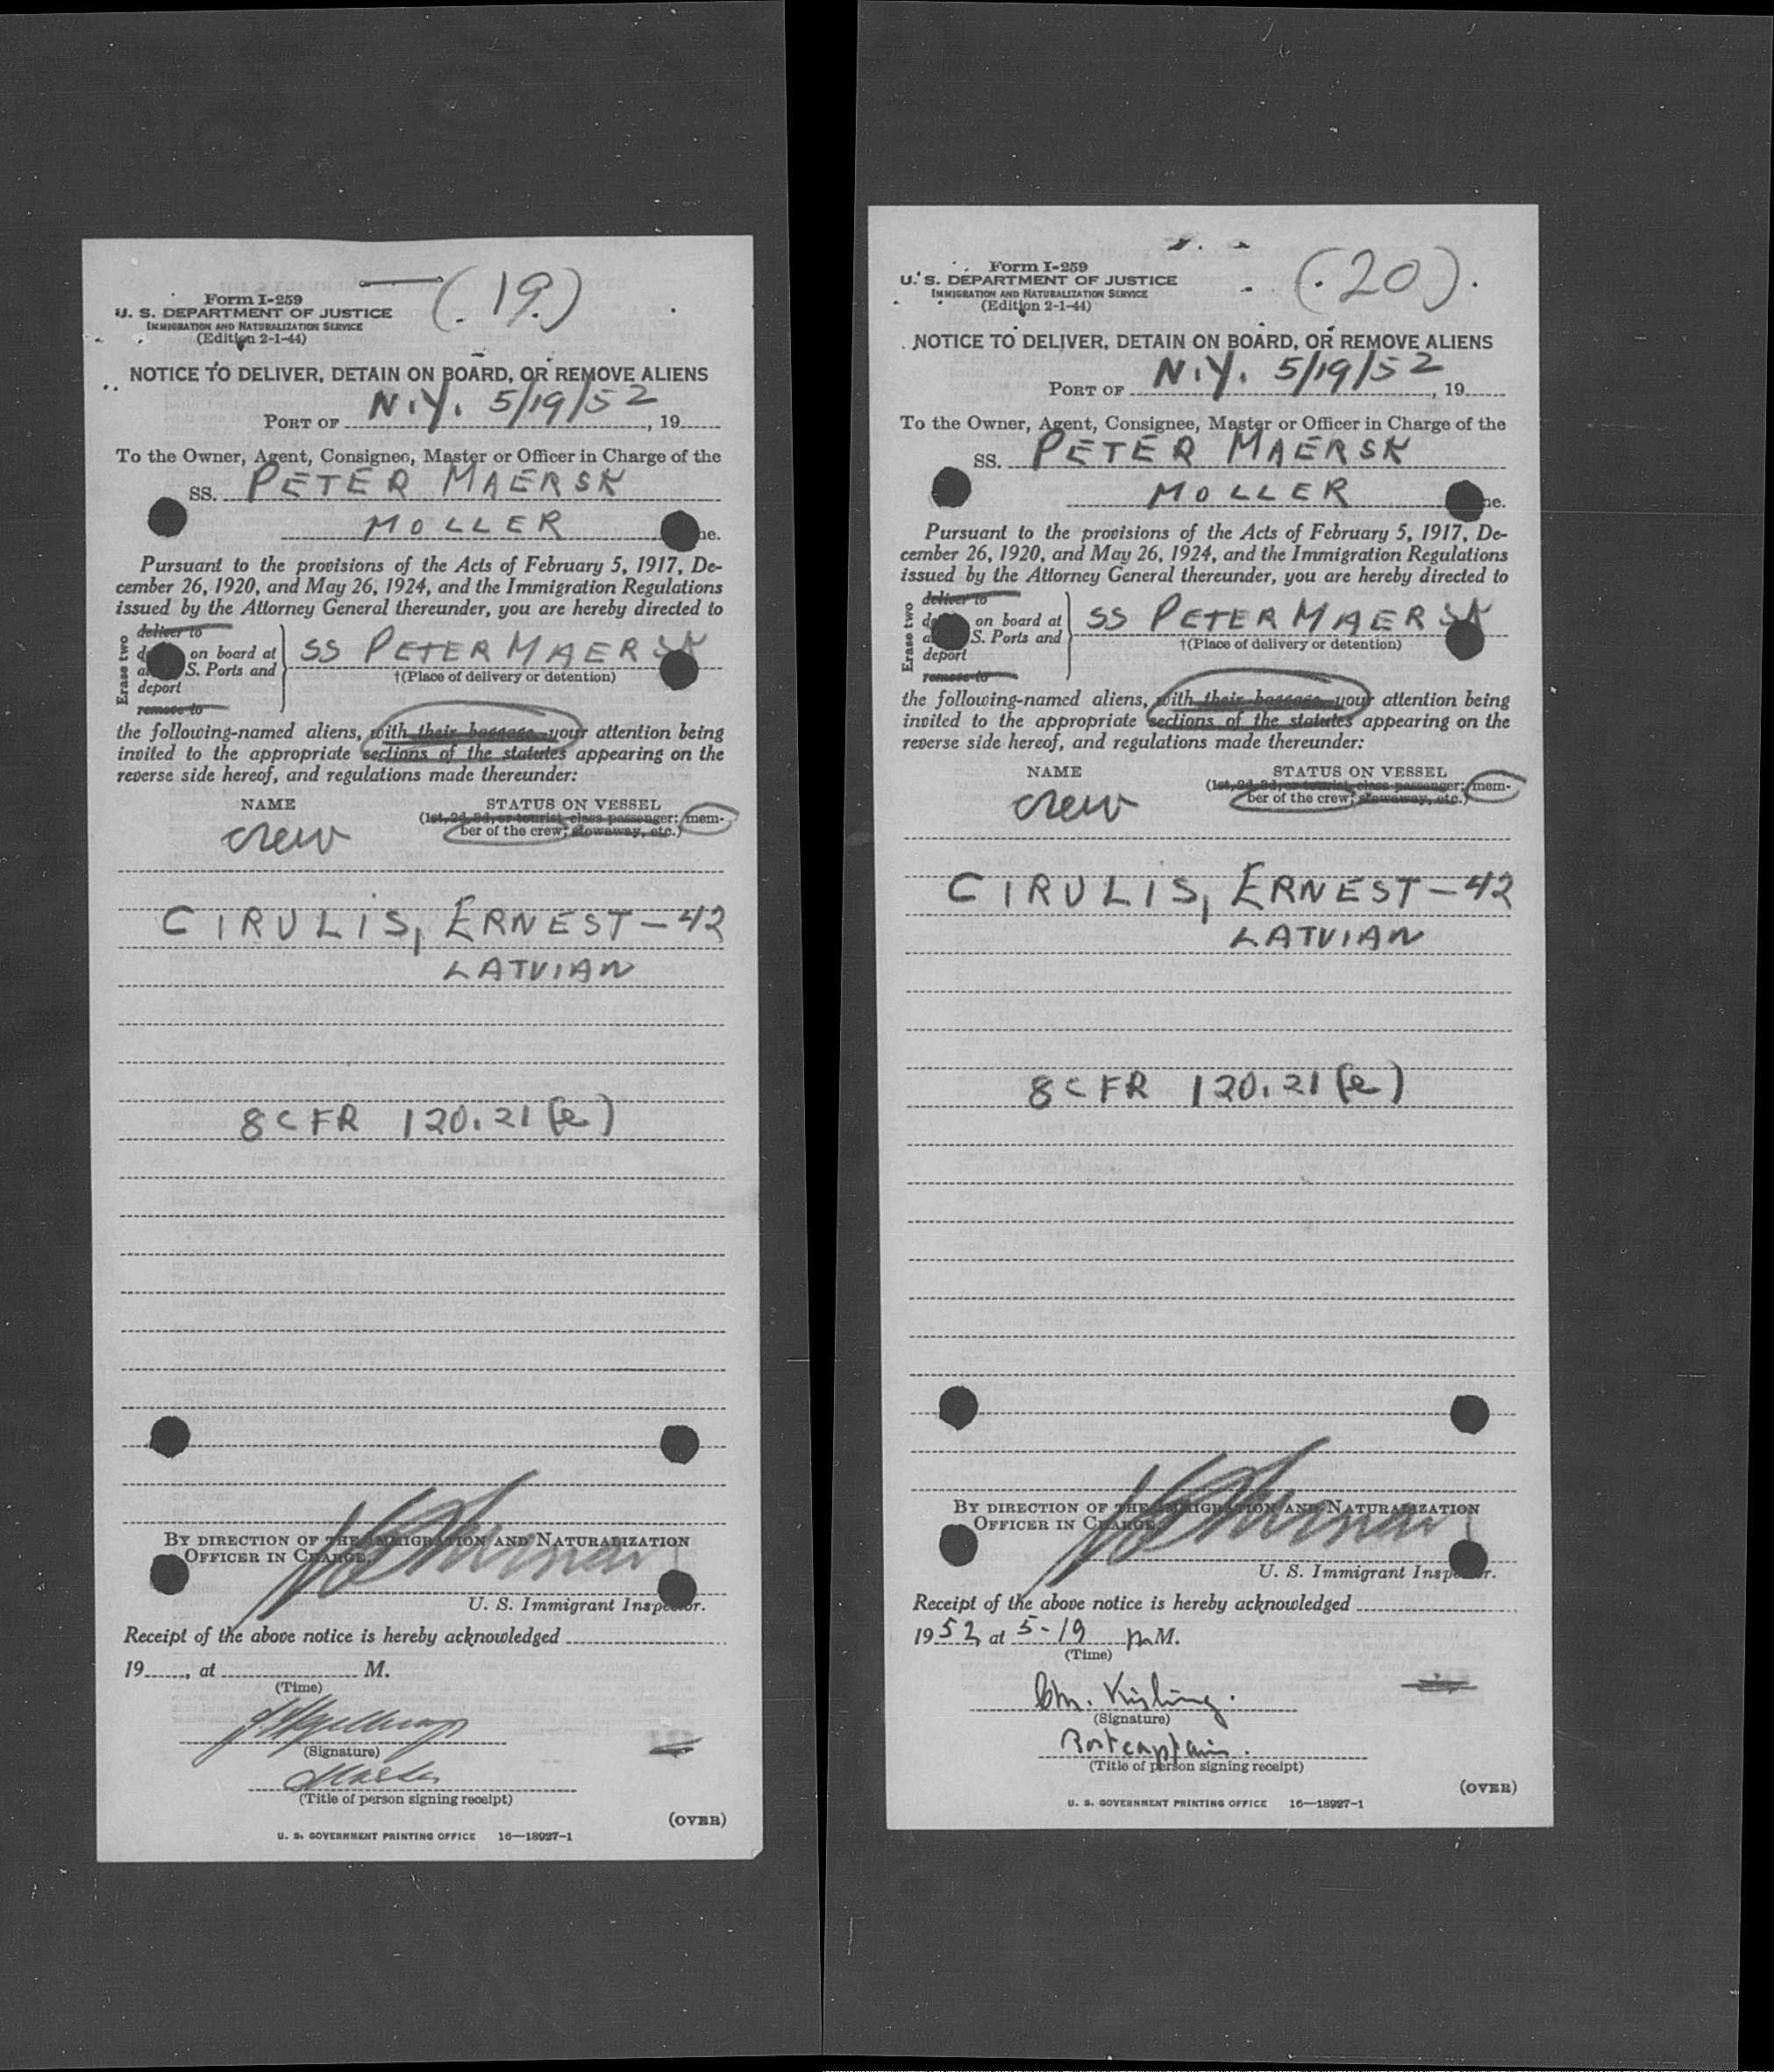 (19)
Form I-259
U. S. DEPARTMENT OF JUSTICE
IMMIGRATION AND NATURALIZATION SERVICE
(Edition 2-1-44)
NOTICE TO DELIVER, DETAIN ON BOARD, OR REMOVE ALIENS
PORT OF N.Y. 5/19/52, 19
To the Owner, Agent, Consignee, Master or Officer in Charge of the
SS. PETER MAERSK
MOLLER ne.
Pursuant to the provisions of the Acts of February 5, 1917, De-
cember 26, 1920, and May 26, 1924, and the Immigration Regulations
issued by the Attorney General thereunder, you are hereby directed to
Erase two
deliver to
on board at
S. Ports and
deport
remove to
SS PETER MAERSK
†(Place of delivery or detention)
the following-named aliens, with their baggage, your attention being
invited to the appropriate sections of the statutes appearing on the
reverse side hereof, and regulations made thereunder:
NAME STATUS ON VESSEL
(1st, 2d, 3d, or tourist class passenger; mem-
crew ber of the crew; stowaway, etc.)
CIRULIS, ERNEST - 42
LATVIAN
8 CFR 120.21(e)
BY DIRECTION OF THE IMMIGRATION AND NATURALIZATION
OFFICER IN CHARGE.
U. S. Immigrant Inspector.
Receipt of the above notice is hereby acknowledged
19, at M.
(Time)
(Signature)
Master
(Title of person signing receipt)
(OVER)
U. S. GOVERNMENT PRINTING OFFICE 16—18927-1
(20)
Form I-259
U. S. DEPARTMENT OF JUSTICE
IMMIGRATION AND NATURALIZATION SERVICE
(Edition 2-1-44)
NOTICE TO DELIVER, DETAIN ON BOARD, OR REMOVE ALIENS
PORT OF N.Y. 5/19/52, 19
To the Owner, Agent, Consignee, Master or Officer in Charge of the
SS. PETER MAERSK
MOLLER ne.
Pursuant to the provisions of the Acts of February 5, 1917, De-
cember 26, 1920, and May 26, 1924, and the Immigration Regulations
issued by the Attorney General thereunder, you are hereby directed to
Erase two
deliver to
on board at
S. Ports and
deport
remove to
SS PETER MAERSK
†(Place of delivery or detention)
the following-named aliens, with their baggage, your attention being
invited to the appropriate sections of the statutes appearing on the
reverse side hereof, and regulations made thereunder:
NAME STATUS ON VESSEL
(1st, 2d, 3d, or tourist class passenger; mem-
crew ber of the crew; stowaway, etc.)
CIRULIS, ERNEST - 42
LATVIAN
8 CFR 120.21(e)
BY DIRECTION OF THE IMMIGRATION AND NATURALIZATION
OFFICER IN CHARGE.
U. S. Immigrant Inspector.
Receipt of the above notice is hereby acknowledged
1952, at 5-19 p.M.
(Time)
Chr. Kisling.
(Signature)
Portcaptain.
(Title of person signing receipt)
(OVER)
U. S. GOVERNMENT PRINTING OFFICE 16—18927-1